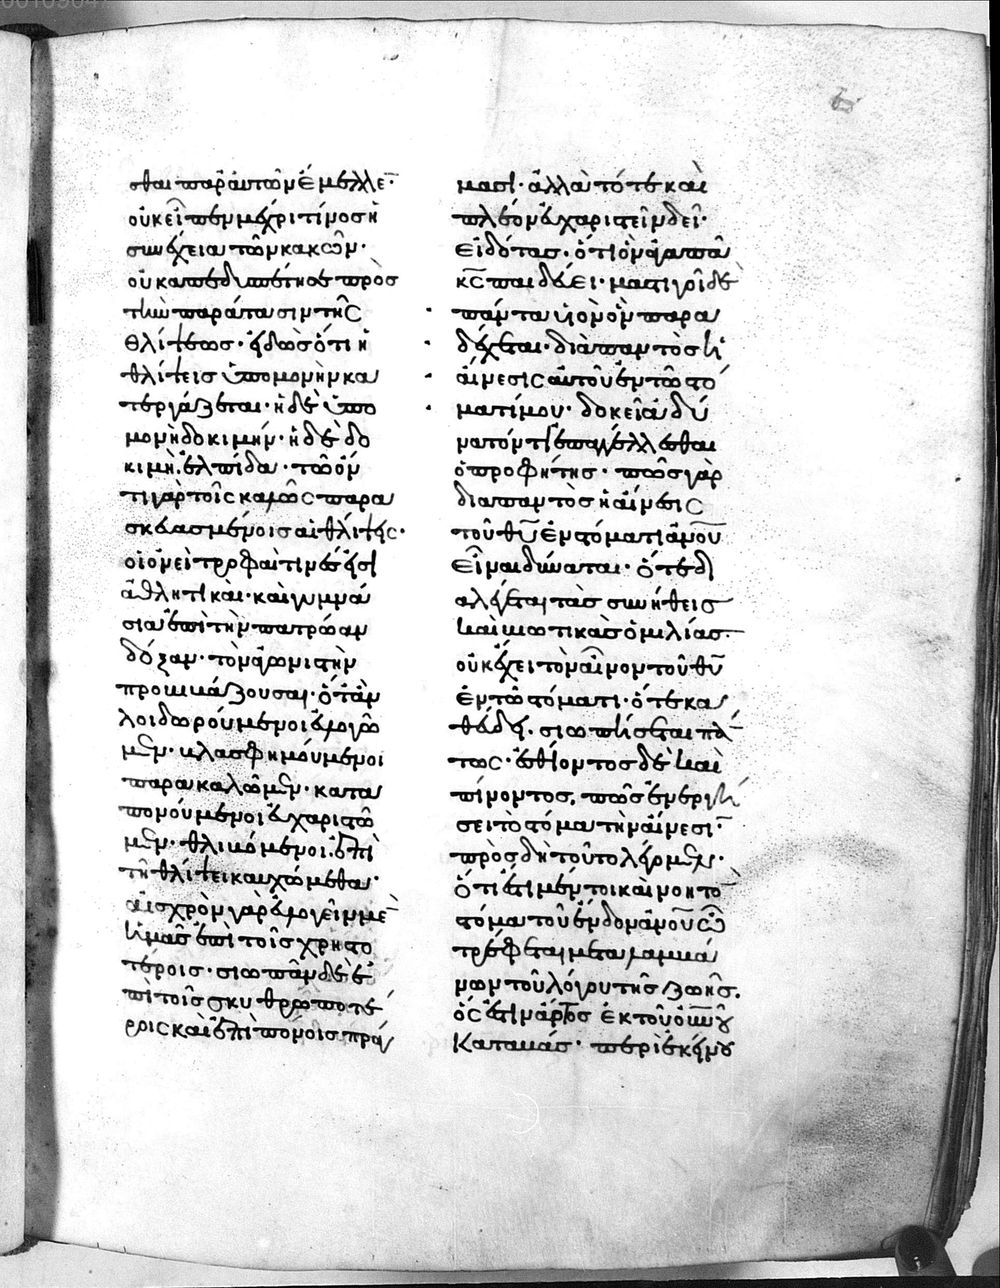 σθαι παρ' αὐτῶν ἔμελλε(ν)·
οὐκ εἶπεν μέχρι τίνος ἡ
συνέχεια τῶν κακῶν·
οὐκ ἀπεδυσπέτησε πρὸς
τὴν παράτασιν τῆς
θλίψεως· εἰδὼς ὅτι ἡ
θλίψεις ὑπομονὴν κα
τεργάζεται· ἡ δὲ ὑπο
μονὴ δοκιμήν· ἡ δὲ δο
κιμὴ ἐλπίδα· τῷ ὄν
τι γὰρ τοῖς καλῶς παρα
σκευασμένοις αἱ θλίψεις·
οἱονεὶ τροφαὶ τινές εἰσι
ἀθλητικαὶ· καὶ γυμνά
σια ἐπὶ τὴν πατρώαν
δόξαν· τὸν ἀγωνιστὴν
προβιβάζουσαι· ὅταν
λοιδωρούμενοι εὐλογῶ
μεν· βλασφημούμενοι
παρακαλῶμεν· κατα
πονούμενοι εὐχαριστῶ
μεν· θλιβόμενοι ἐπὶ
τῇ θλίψει καυχώμεθα·
αἰσχρὸν γὰρ εὐλογεῖν μὲ(ν)
ἡμᾶς ἐπὶ τοῖς χρηστο
τέροις· σιωπᾶν δὲ ἐ
πὶ τοῖς σκυθρωποτέ
ροις καὶ ἐπιπόνοις πρά
μασι· ἀλλὰ τότε καὶ
πλέον εὐχαριστεῖν δεῖ·
εἰδότας· ὅτι ὃν ἀγαπᾶ
κ̅ς̅ παιδεύει· μαστιγοῖ δὲ
πάντα υἱὸν ὃν παρα
δέχεται· διὰ παντὸς ἡ
αἴνεσις αὐτοῦ ἐν τῷ στό
ματί μου· δοκεῖ ἀδύ
νατόν τι ἐπαγγέλλεσθαι
ὁ προφήτης· πῶς γὰρ
διαπαντὸς ἡ αἴνεσις
τοῦ θ̅υ̅ ἐν στόματι ἀ̅ν̅ο̅υ̅
εἶναι δύναται· ὅτε δι
αλέγεται τὰς συνήθεις
καὶ βιωτικὰς ὁμιλίας·
οὐκ ἔχει τὸν αἶνον τοῦ θ̅υ̅
ἐν τῷ στόματι· ὅτε κα
θεύδει· σιωπήσεται πά(ν)
τως· ἐσθίοντος δὲ καὶ
πίνοντος, πῶς ἐνεργή
σει τὸ στόμα τὴν αἴνεσι(ν)·
πρὸς δὴ τοῦτο λέγομεν·
ὅτι ἔστι μέν τοι καὶ νοητὸ(ν)
στόμα τοῦ ἔνδον ἀ̅ν̅ο̅υ̅ ᾧ
τρέφεται μεταλαμβά
νων τοῦ λόγου τῆς ζωῆς·
ὅς ἐστιν ἄρτος ἐκ τοῦ ο̅υ̅ν̅ο̅υ̅
καταβάς· περὶ ἐκείνου